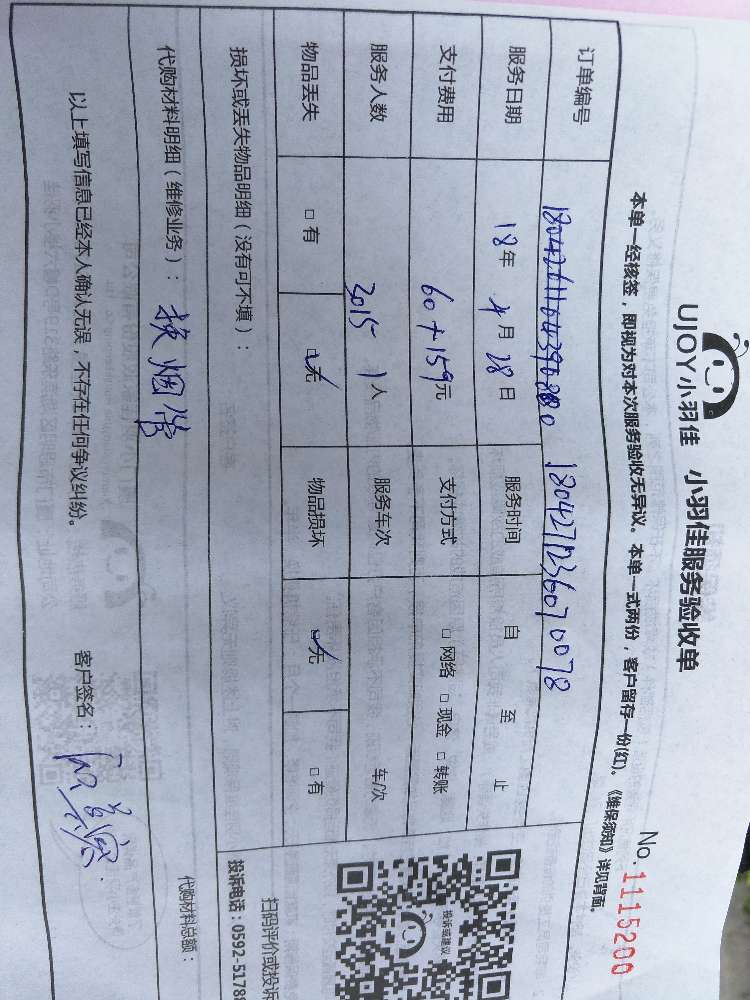 UJOY小羽佳 小羽佳服务验收单
No.1115200
本单一经核签，即视为对本次服务验收无异议。本单一式两份，客户留存一份(红)。《维保须知》详见背面。
订单编号 180427123607 0078
服务日期 18年 4月 28日 服务时间 自 至 止
支付费用 60+159元 支付方式 □网络 □现金 □转账
服务人数 3015 1人 服务车次 车/次
物品丢失 □有 ☑无 物品损坏 ☑无 □有
损坏或丢失物品明细（没有可不填）：
代购材料明细（维修业务）：换烟管
代购材料总额：
以上填写信息已经本人确认无误，不存在任何争议纠纷。 客户签名：
投诉或建议
扫码评价或投诉
投诉电话：0592-5178